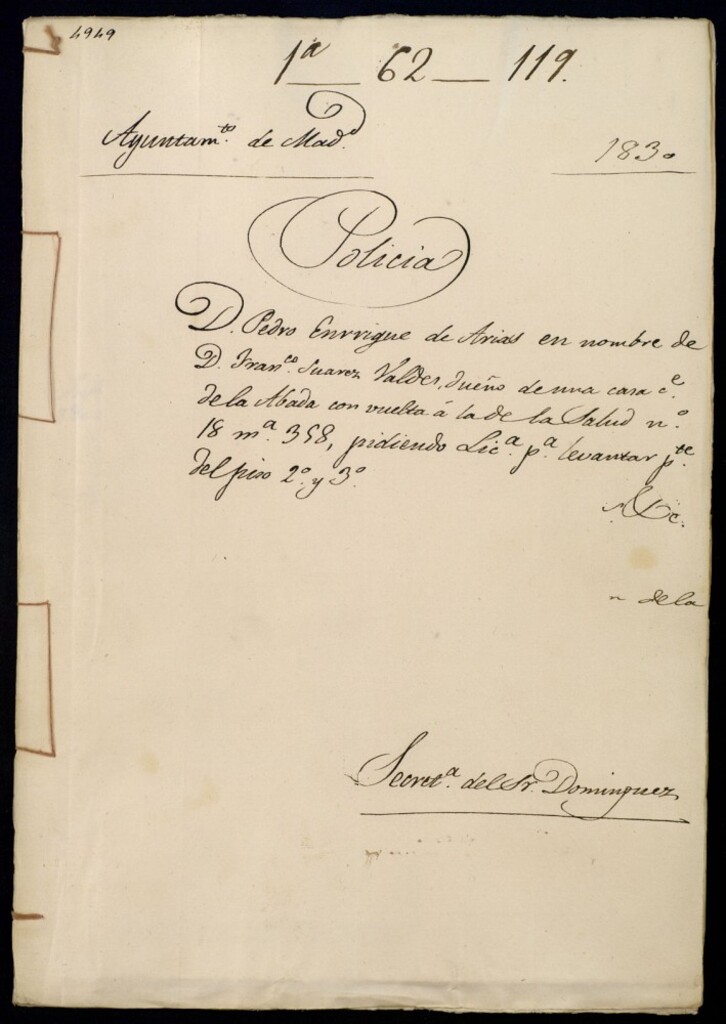 4949
1ª 62 — 119.
Ayuntam.to de Mad.d
1830
Policia
D. Pedro Enrrique de Arias en nombre de
D. Fran.co Suarez Valdes, dueño de una casa c.e
de la Abada con vuelta á la de la Salud n.º
18 m.ª 358, pidiendo Lic.ª p.ª levantar p.te
del piso 2.º y 3.º
&c.
de la
Secret.ª del Sr. Dominguez